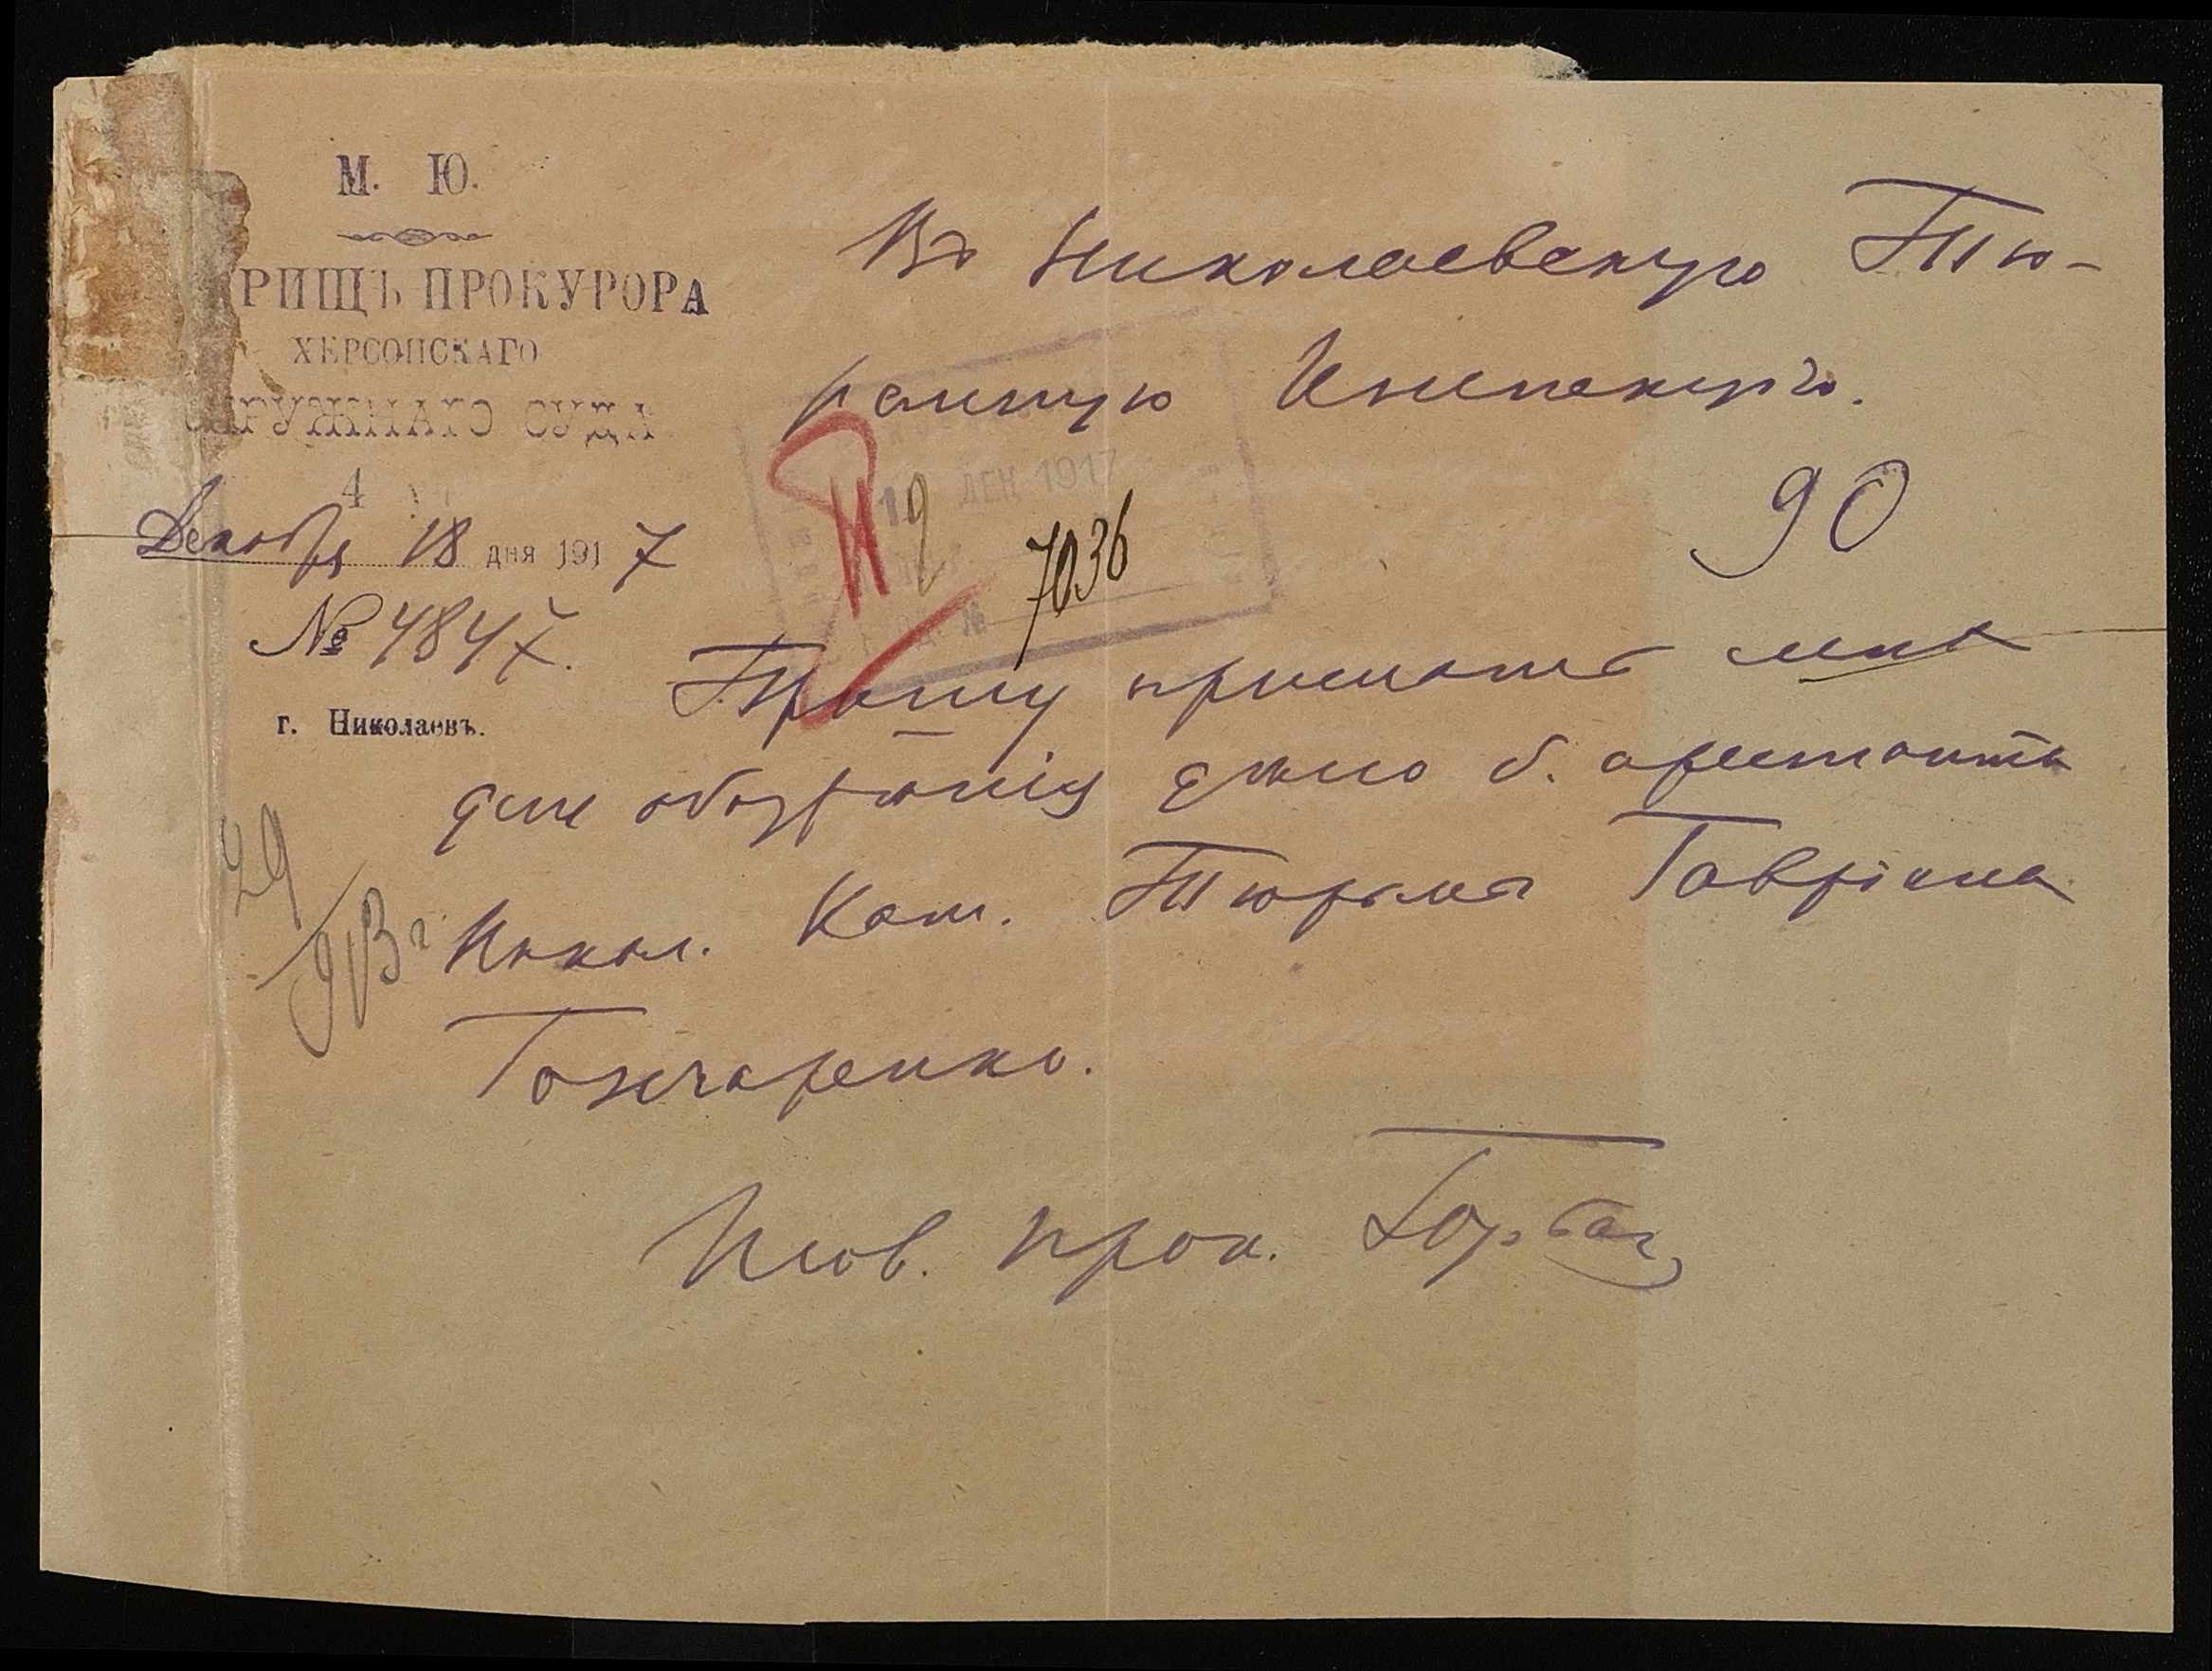 М. Ю.
РИЩЪ ПРОКУРОРА
ХЕРСОНСКАГО
ОКРУЖНАГО СУДА
4
Декабря 18 дня 1917
№ 4847.
г. Николаевъ.
Въ Николаевскую Тю-
ремную Инспекцію.
90
19 ДЕК 1917
№ 7036
Прошу прислать мнѣ
для обозрѣнія дѣло б. арестанта
Никол. Кат. Тюрьмы Гавріила
Гончаренко.
29
Тов. Прок. Горбач